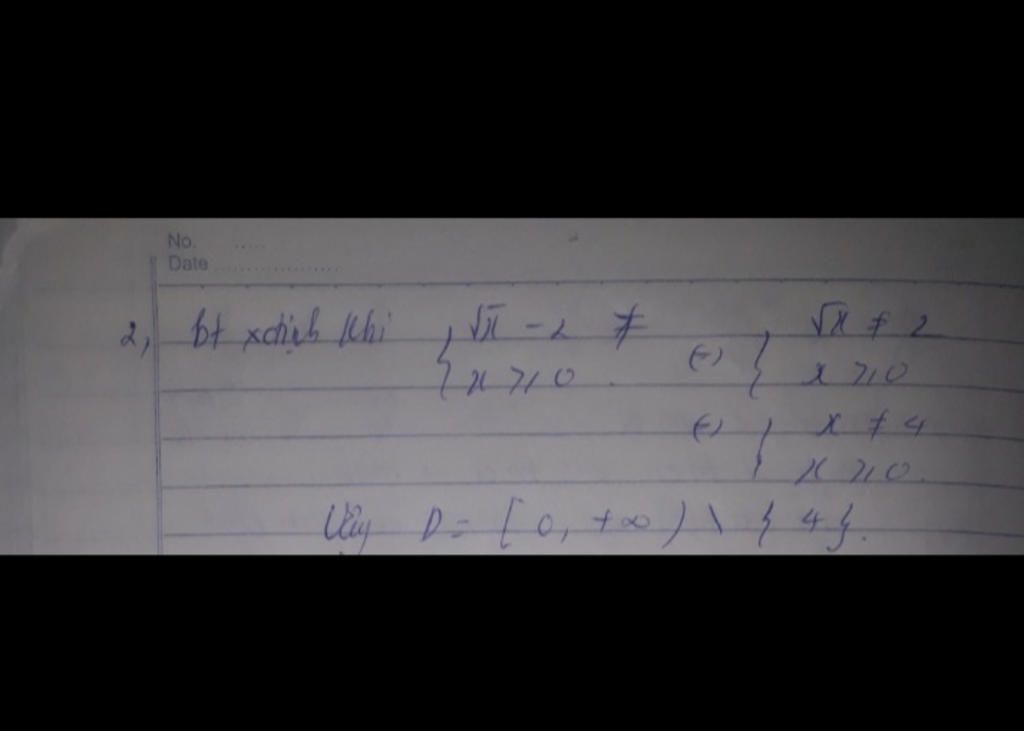 No. .....
Date ...................
2, bt xđịnh khi { √x - 2 ≠ (=) { √x ≠ 2
x ≥ 0 . x ≥ 0
(=) { x ≠ 4
x ≥ 0.
Vậy D = [ 0, +∞ ) \ { 4 }.